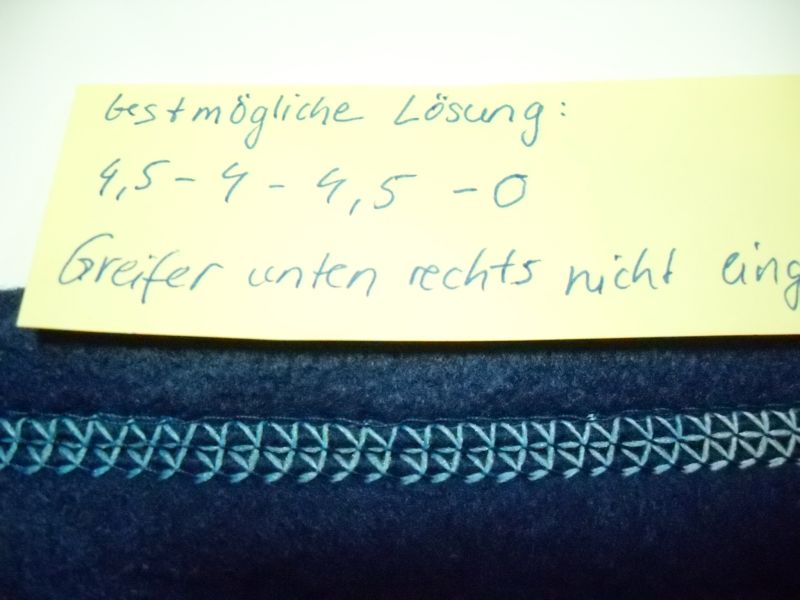 bestmögliche Lösung:
4,5 - 4 - 4,5 - 0
Greifer unten rechts nicht eing